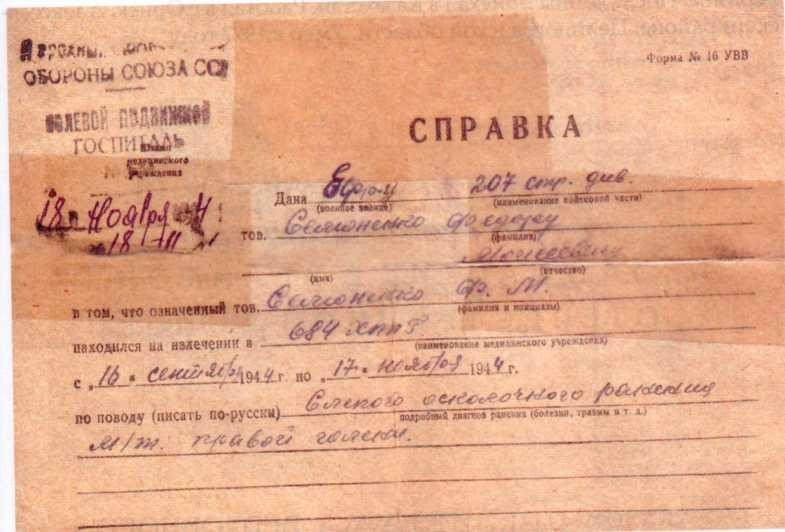 ОБОРОНЫ СОЮЗА ССР
ПОЛЕВОЙ ПОДВИЖНОЙ
ГОСПИТАЛЬ
Штамп
медицинского
учреждения
18 Ноября
18 11
Форма № 16 УВВ
СПРАВКА
Дана Ефрт 207 стр. див.
(воинское звание) (наименование войсковой части)
тов. Селионенко Федору
(фамилия)
Моисеевичу
(имя) (отчество)
в том, что означенный тов. Селионенко Ф. М.
(фамилия и инициалы)
находился на излечении в 684 хппг
(наименование медицинского учреждения)
с „16" сентября 1944 г. по „17" ноября 1944 г.
по поводу (писать по-русски) Слепого осколочного ранения
подробный диагноз ранения (болезни, травмы и т. д.)
м/т. правой голени.